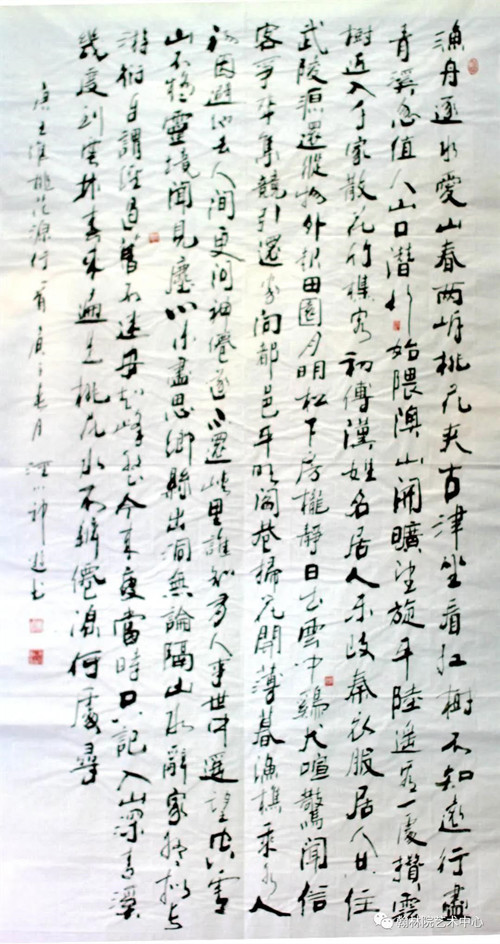 漁舟逐水愛山春两岸桃花夹古津坐看红樹不知遠行盡
青溪忽值人山口潜行始隈隩山開曠望旋平陸遥看一處攢雲
樹近入千家散花竹樵客初傳漢姓名居人未改秦衣服居人共住
武陵源還從物外起田園月明松下房櫳靜日出雲中鷄犬喧驚聞俗
客爭來集競引還家問都邑平明閭巷掃花開薄暮漁樵乘水入
初因避地去人間更问神僊遂不還峡里誰知有人事世中遥望空雲
山不疑靈境聞見塵心未盡思鄉縣出洞無論隔山水辭家終拟长
游衍自謂經過舊不迷安知峰壑今来變當時只記入山深青溪
幾度到雲林春来遍是桃花水不辨僊源何處尋
唐王維桃花源行一首庚子春月
翰林院艺术中心